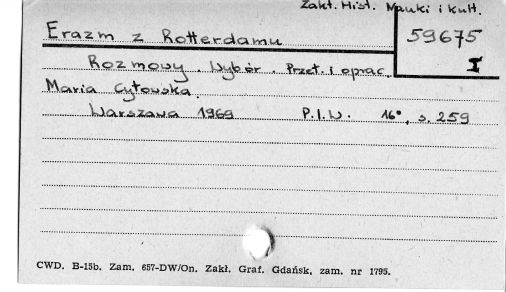 Zakł. Hist. Nauki i Kult.
Erazm z Rotterdamu
59675
I
Rozmowy. Wybór. Przeł. i oprac.
Maria Cytowska.
Warszawa 1969 P.I.W. 16°, s. 259
CWD. B-15b. Zam. 657-DW/On. Zakł. Graf. Gdańsk, zam. nr 1795.